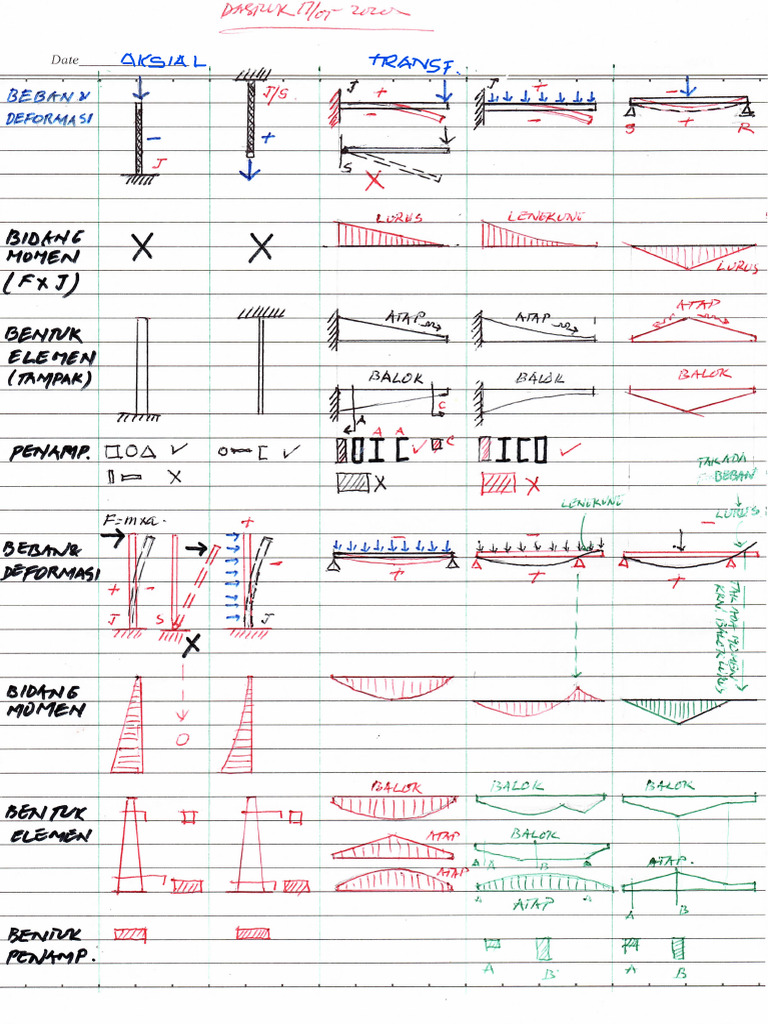 DASTUK 17/07 2020
Date
AKSIAL
TRANSF.
BEBAN &
DEFORMASI
J
J/S
J
+
-
J
+
-
-
+
J
S
S
R
X
BIDANG
MOMEN
(F x J)
X
X
LURUS
LENGKUNG
LURUS
BENTUK
ELEMEN
(TAMPAK)
ATAP
ATAP
ATAP
BALOK
BALOK
BALOK
A
C
PENAMP.
A A
C
X
X
X
TAK ADA
BEBAN
LENGKUNG
LURUS
F = m x a
BEBAN &
DEFORMASI
+
-
J
S
X
+
-
J
-
+
-
+
-
+
TAK ADA MOMEN
KRN. BALOK LURUS
BIDANG
MOMEN
O
BENTUK
ELEMEN
BALOK
BALOK
BALOK
ATAP
BALOK
ATAP
ATAP.
A
B
ATAP
A
B
BENTUK
PENAMP.
A
B
A
B